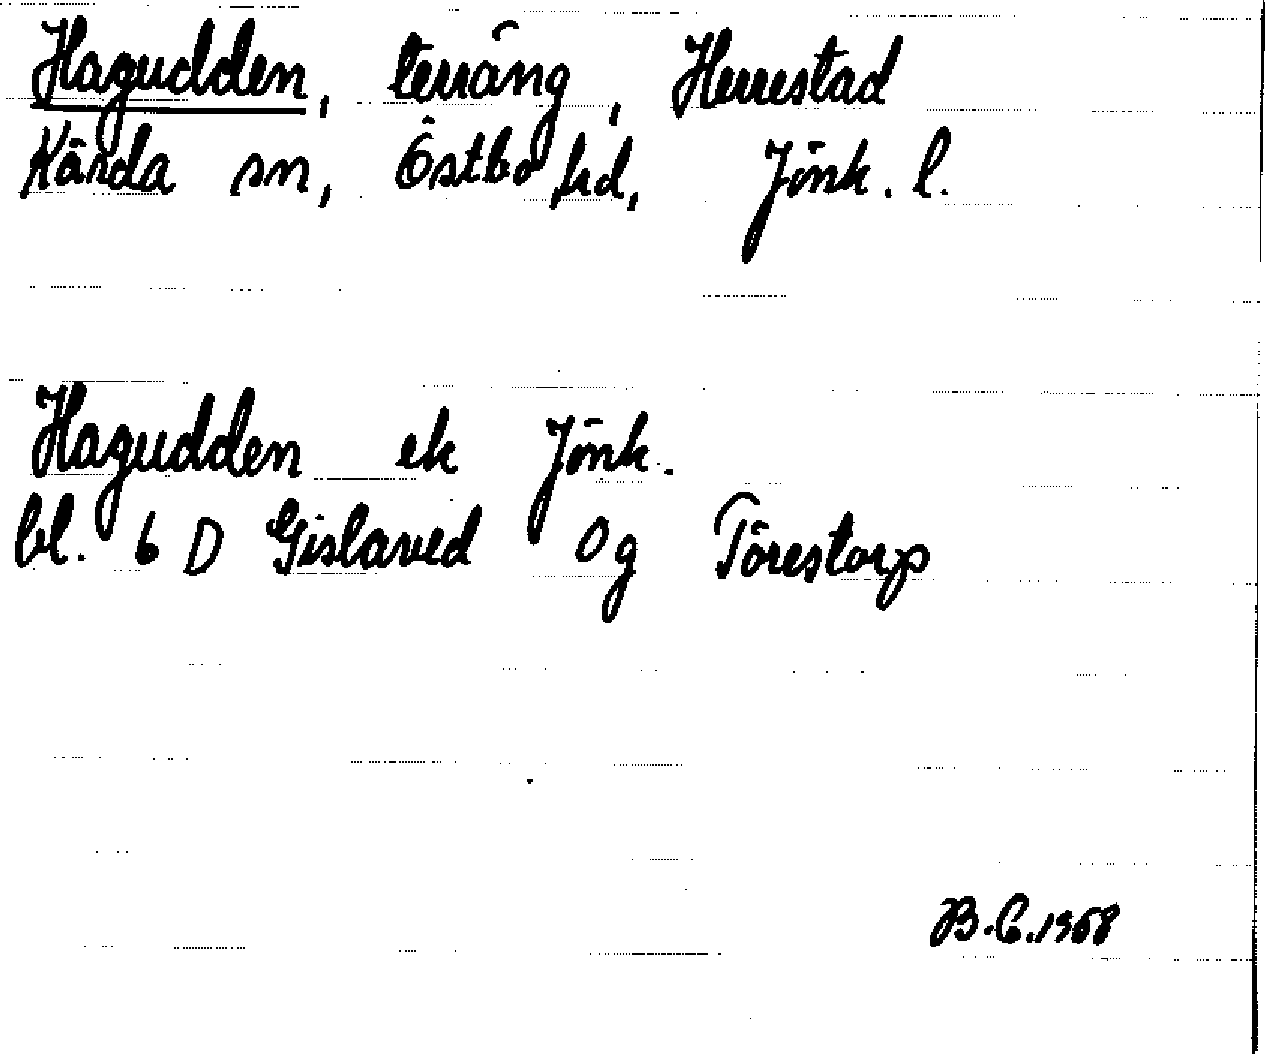 Hagudden, terräng, Herrestad
Kärda sn, Östbo hd, Jönk. l.
Hagudden ek Jönk.
bl. 6 D Gislaved 0g Törestorp
B.C.1968